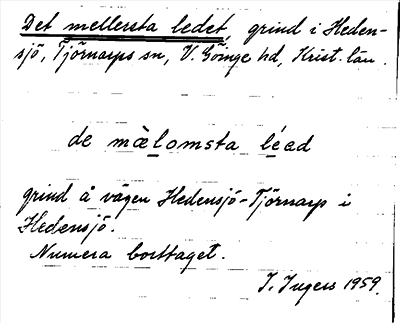 Det mellersta ledet, grind i Heden-
sjö, Tjörnarps sn, V. Göinge hd, Krist. län.
de mæ̀lomsta léad
grind å vägen Hedensjö-Tjörnarp i
Hedensjö.
Numera borttaget.
I. Ingers 1959.